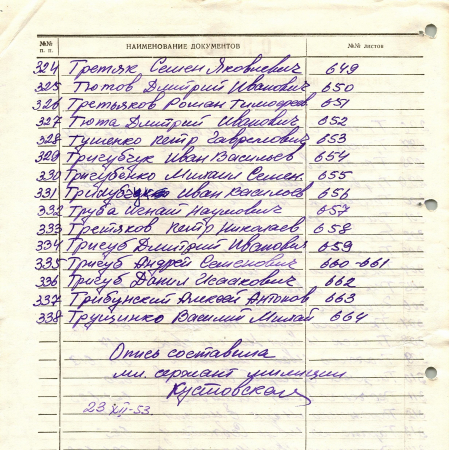 №№ п. п. НАИМЕНОВАНИЕ ДОКУМЕНТОВ №№ листов
324 Третяк Семен Яковлевич 649
325 Тютов Дмитрий Иванович 650
326 Третьяков Роман Тимофеев 651
327 Тюта Дмитрий Иванович 652
328 Тушенко Петр Гаврилович 653
329 Трисубчук Иван Васильев 654
330 Трисубенко Михаил Семен. 655
331 Иван Васильев 656
332 Труба Игнат Наумович 657
333 Третяков Петр Николаев 658
334 Трисуб Дмитрий Иванович 659
335 Трисуб Андрей Семенович 660-661
336 Трисуб Данил Исакович 662
337 Трибунский Алексей Антонов 663
338 Трущинко Василий Михай 664
Опись составила
мл. сержант милиции
Кустовская
23 XII-53